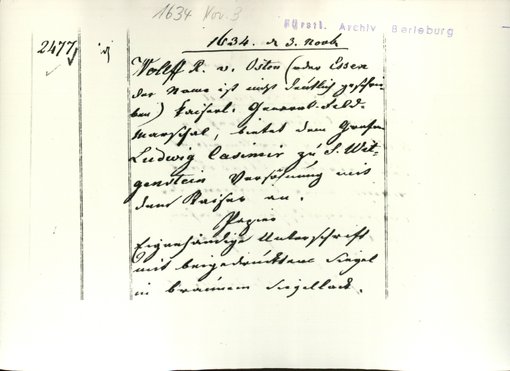 1634 Nov. 3
Fürstl. Archiv Berleburg
2477
1634. d 3. Novb
Wolff R. v. Osten (oder Essen
der Name ist nicht deutlich geschrie-
ben) kaiserl. General-Feld-
marschal, bietet dem Grafen
Ludwig Casimir zu S. Wit-
genstein Versöhnung mit
dem Kaiser an.
Papier
Eigenhändige Unterschrift
mit beigedrücktem Siegel
in braunem Siegellack.